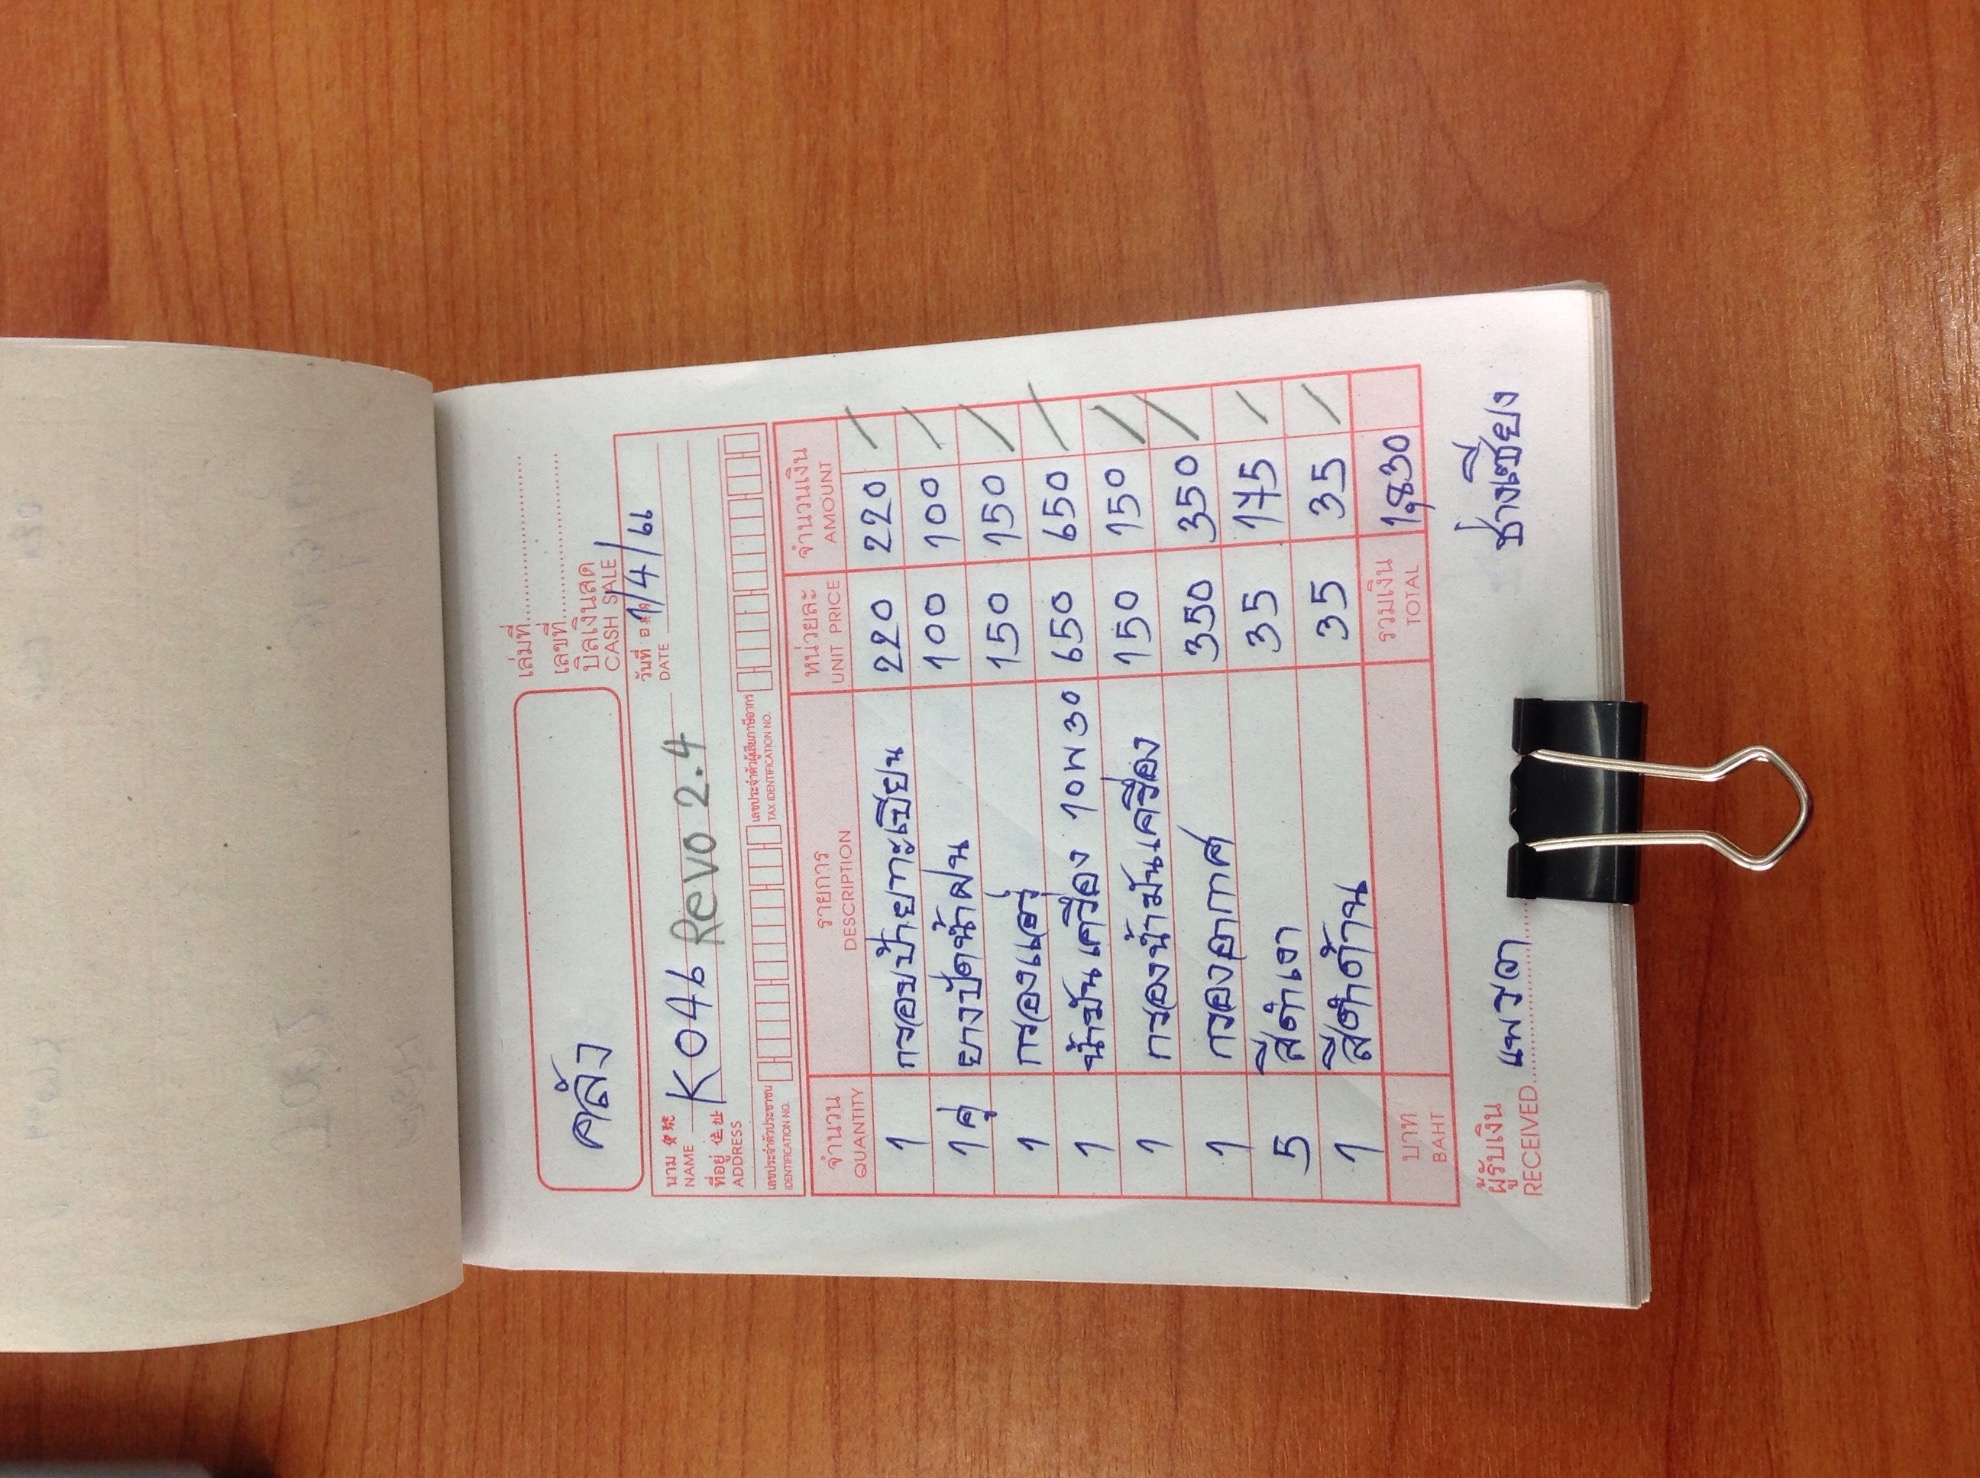 คลัง
เล่มที่
เลขที่
บิลเงินสด
CASH SALE
นาม 宝號 K046 Revo 2.4 วันที่ 日期 1/4/66
NAME DATE
ที่อยู่ 住址
ADDRESS
เลขประจำตัวประชาชน เลขประจำตัวผู้เสียภาษีอากร
IDENTIFICATION NO. TAX IDENTIFICATION NO.
จำนวน รายการ หน่วยละ จำนวนเงิน
QUANTITY DESCRIPTION UNIT PRICE AMOUNT
1 กรอบป้ายทะเบียน 220 220 /
1 คู่ ยางปัดน้ำฝน 100 100 /
1 กรองแอร์ 150 150 /
1 น้ำมันเครื่อง 10W30 650 650 /
1 กรองน้ำมันเครื่อง 150 150 /
1 กรองอากาศ 350 350 /
5 สีดำเงา 35 175 /
1 สีดำด้าน 35 35 /
บาท รวมเงิน 1,830
BAHT TOTAL
ผู้รับเงิน แพรวา ช่างเชียง
RECEIVED